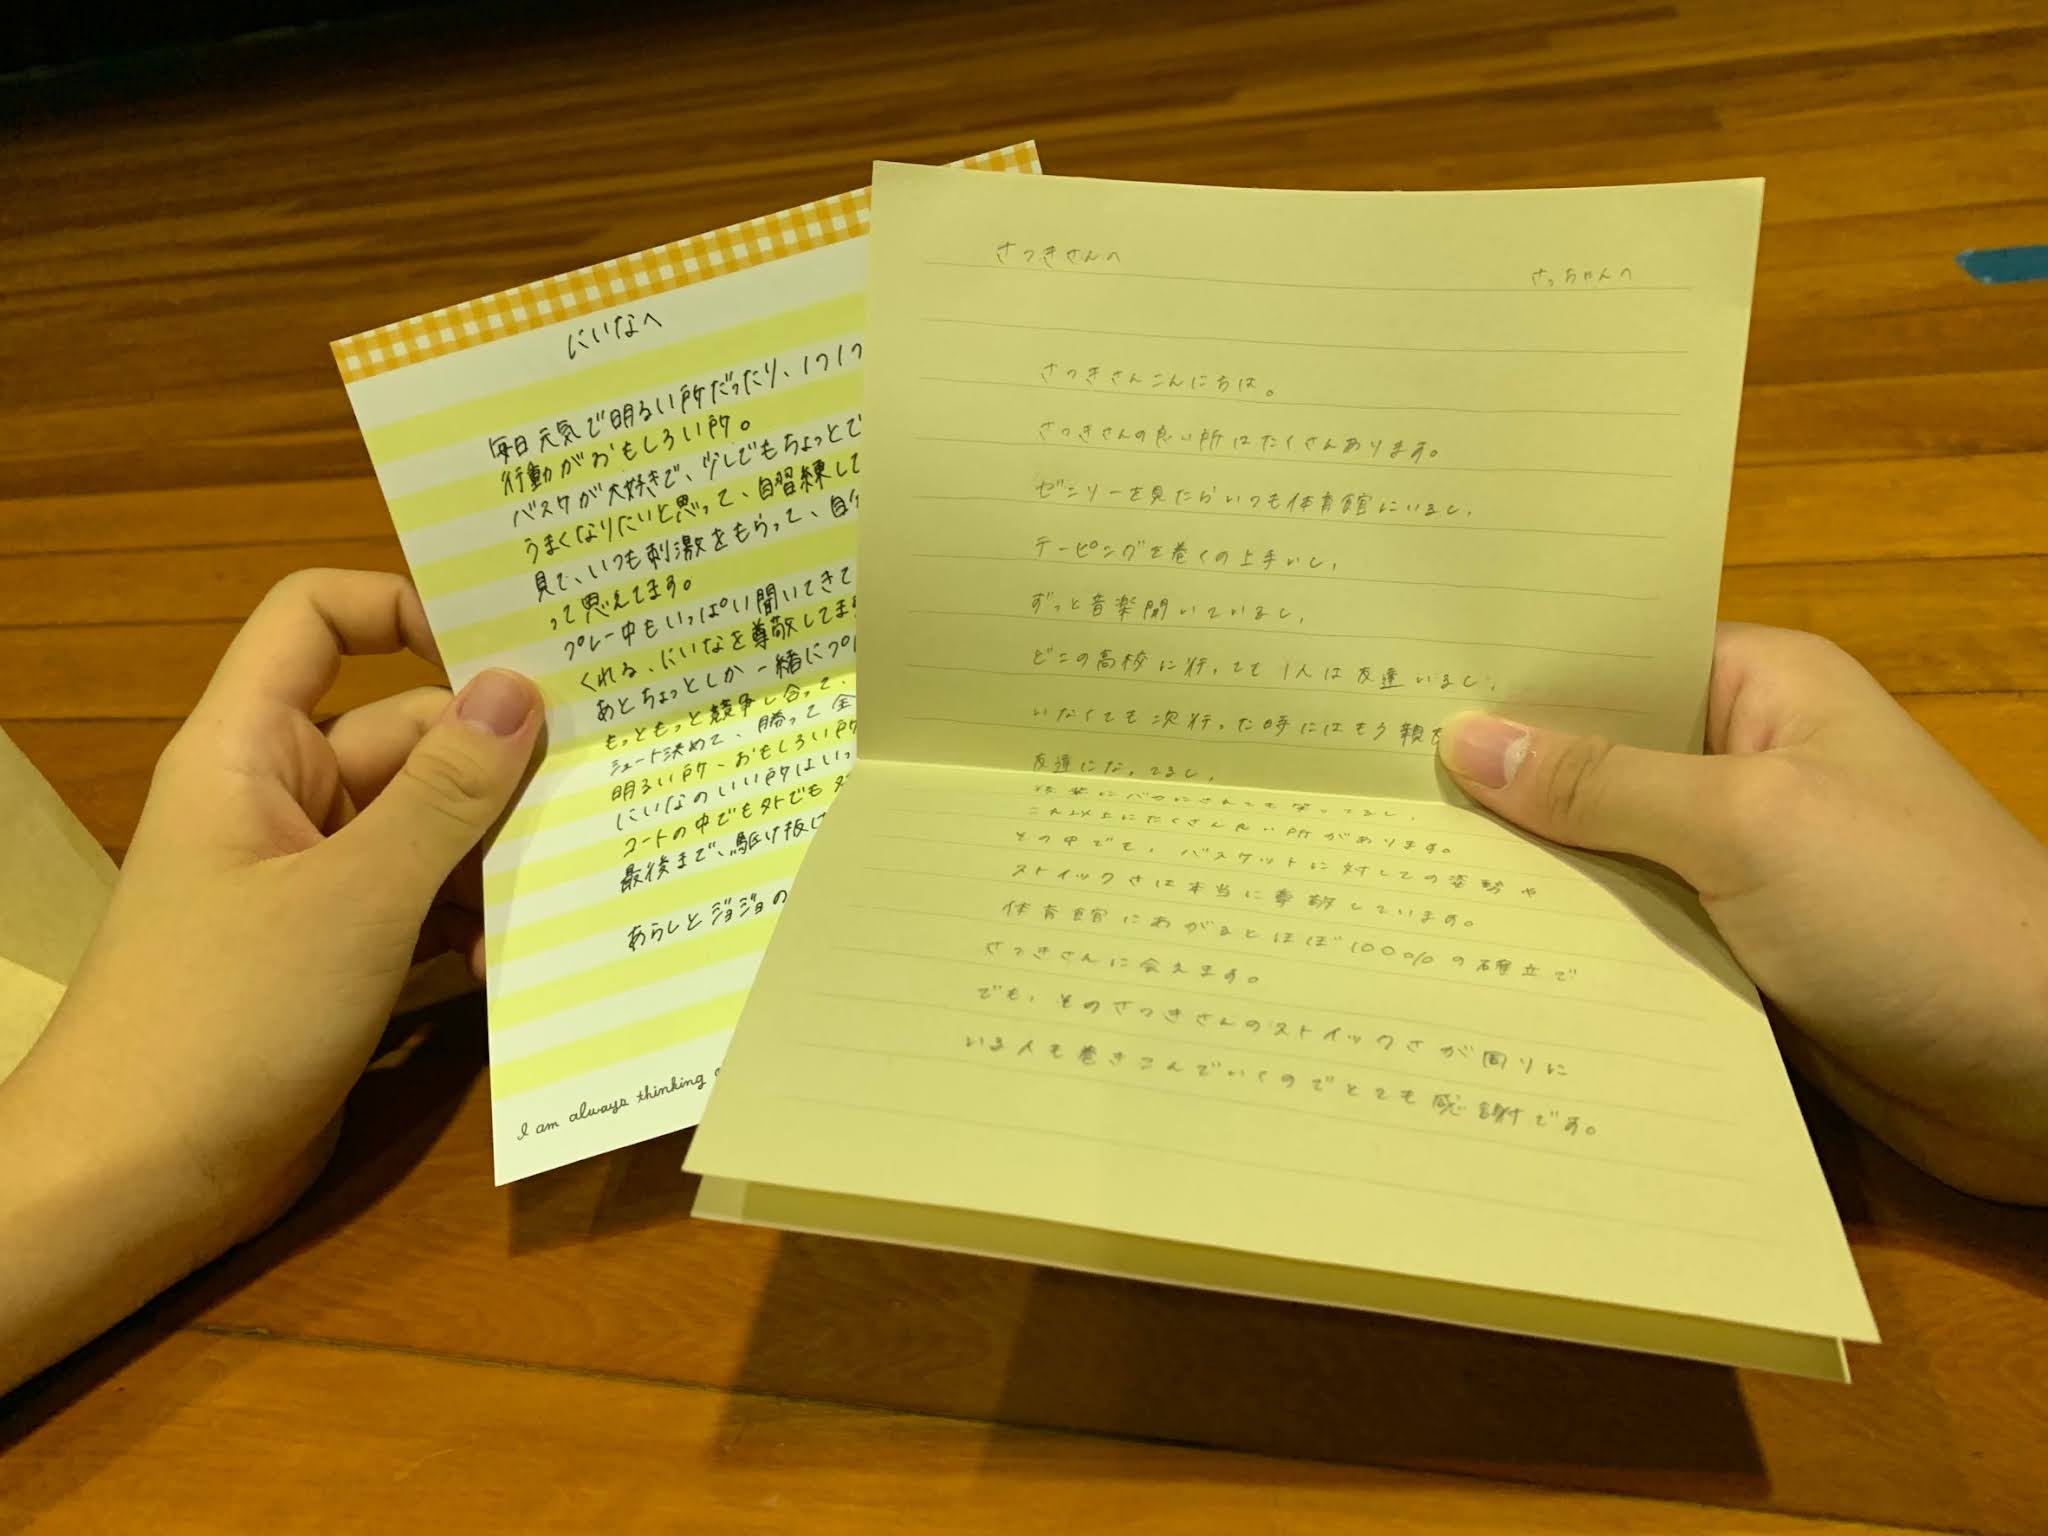 にいなへ
毎日元気で明るい所だったり、1つ1つ
行動がおもしろい所。
バスケが大好きで、少しでもちょっとで
うまくなりたいと思って、自習練して
見て、いつも刺激をもらって、自分
って思えてます。
プレー中もいっぱい聞いてきて
くれる、にいなを尊敬してます
あとちょっとしか一緒にプレ
もっともっと競争し合って、
シュート決めて、勝って全
明るい所、おもしろい所
にいなのいい所はいっ
コートの中でも外でも
最後まで、駆け抜け
あらしとジョジョの
I am always thinking
さつきさんへ
さっちゃんへ
さつきさんこんにちは。
さつきさんの良い所はたくさんあります。
ゼンリーを見たらいつも体育館にいるし、
テーピングを巻くの上手いし、
ずっと音楽聞いているし、
どこの高校に行っても1人は友達いるし、
いなくても次行った時にはもう親
友達になってるし、
後輩にバカにされても笑ってるし、
これ以上にたくさん良い所があります。
その中でも、バスケットに対しての姿勢や
ストイックさは本当に尊敬しています。
体育館にあがるとほぼ100%の確立で
さつきさんに会えます。
でも、そのさつきさんのストイックさが周りに
いる人も巻きこんでいくのでとても感謝です。